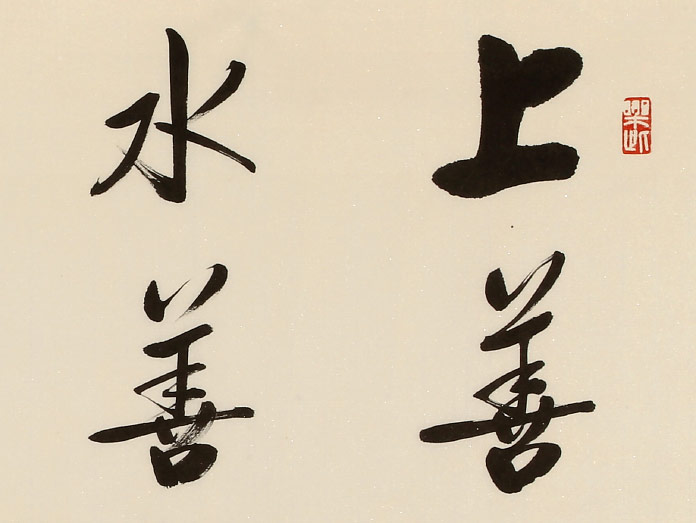 上善
水善